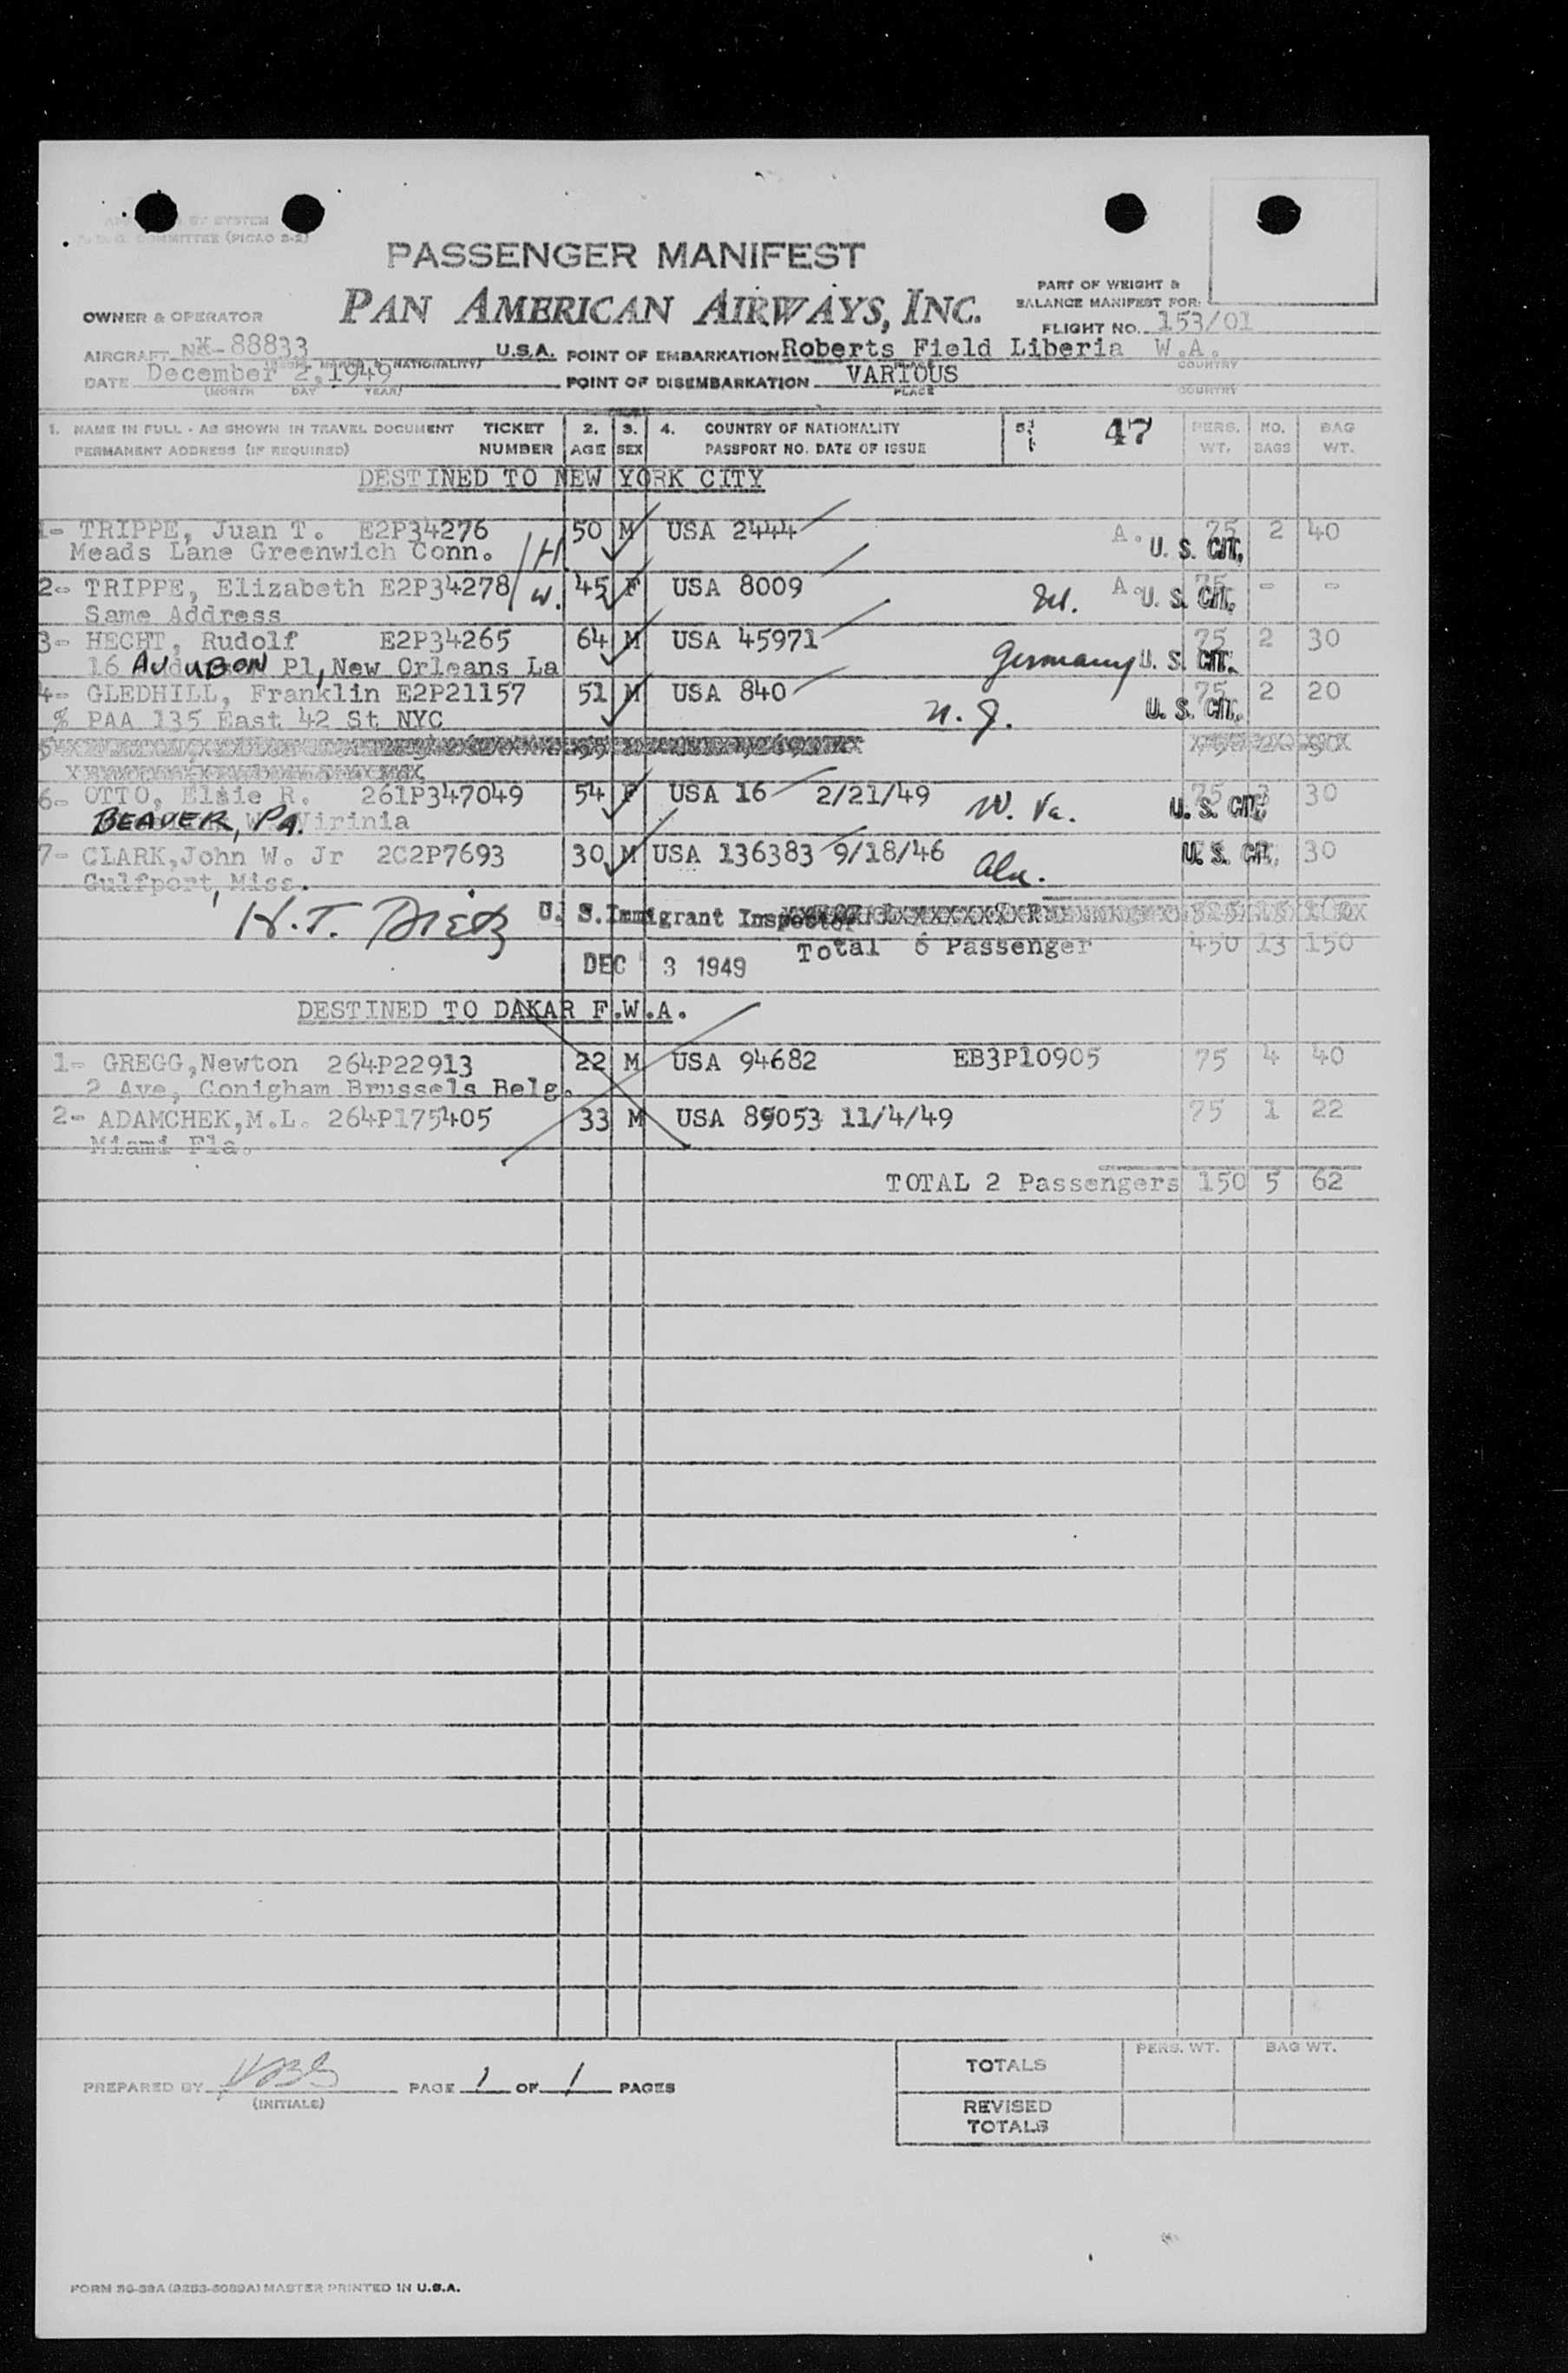 BY SYSTEM
COMMITTEE (PICAO S-2)
PASSENGER MANIFEST
PAN AMERICAN AIRWAYS, INC.
PART OF WEIGHT &
BALANCE MANIFEST FOR:
OWNER & OPERATOR
FLIGHT NO. 153/01
AIRCRAFT NX-88833 U.S.A. POINT OF EMBARKATION Roberts Field Liberia W.A.
NATIONALITY) COUNTRY
DATE December 2, 1949 POINT OF DISEMBARKATION VARIOUS
(MONTH DAY YEAR) PLACE COUNTRY
1. NAME IN FULL - AS SHOWN IN TRAVEL DOCUMENT TICKET 2. 3. 4. COUNTRY OF NATIONALITY 5. 47 PERS. NO. BAG
PERMANENT ADDRESS (IF REQUIRED) NUMBER AGE SEX PASSPORT NO. DATE OF ISSUE WT. BAGS WT.
DESTINED TO NEW YORK CITY
1- TRIPPE, Juan T. E2P34276 H. 50 M USA 2444 A. U. S. CIT. 75 2 40
Meads Lane Greenwich Conn.
2- TRIPPE, Elizabeth E2P34278 W. 45 F USA 8009 A. U. S. CIT. 75 - -
Same Address
3- HECHT, Rudolf E2P34265 64 M USA 45971 Germany U. S. CIT. 75 2 30
16 AUDUBON Pl, New Orleans La
4- GLEDHILL, Franklin E2P21157 51 M USA 840 N. J. U. S. CIT. 75 2 20
% PAA 135 East 42 St NYC
6- OTTO, Elsie R. 261P347049 54 F USA 16 2/21/49 W. Va. U. S. CIT. 75 3 30
BEAVER, PA. Virinia
7- CLARK, John W. Jr 2C2P7693 30 M USA 136383 9/18/46 Ala. U. S. CIT. 30
Gulfport, Miss.
H.T. Dietz U. S. Immigrant Inspector
Total 6 Passenger 450 13 150
DEC 3 1949
DESTINED TO DAKAR F.W.A.
1- GREGG, Newton 264P22913 22 M USA 94682 EB3P10905 75 4 40
2 Ave, Conigham Brussels Belg.
2- ADAMCHEK, M.L. 264P175405 33 M USA 89053 11/4/49 75 1 22
Miami Fla.
TOTAL 2 Passengers 150 5 62
PERS. WT. BAG WT.
TOTALS
PREPARED BY PAGE 1 OF 1 PAGES
(INITIALS)
REVISED
TOTALS
MASTER PRINTED IN U.S.A.